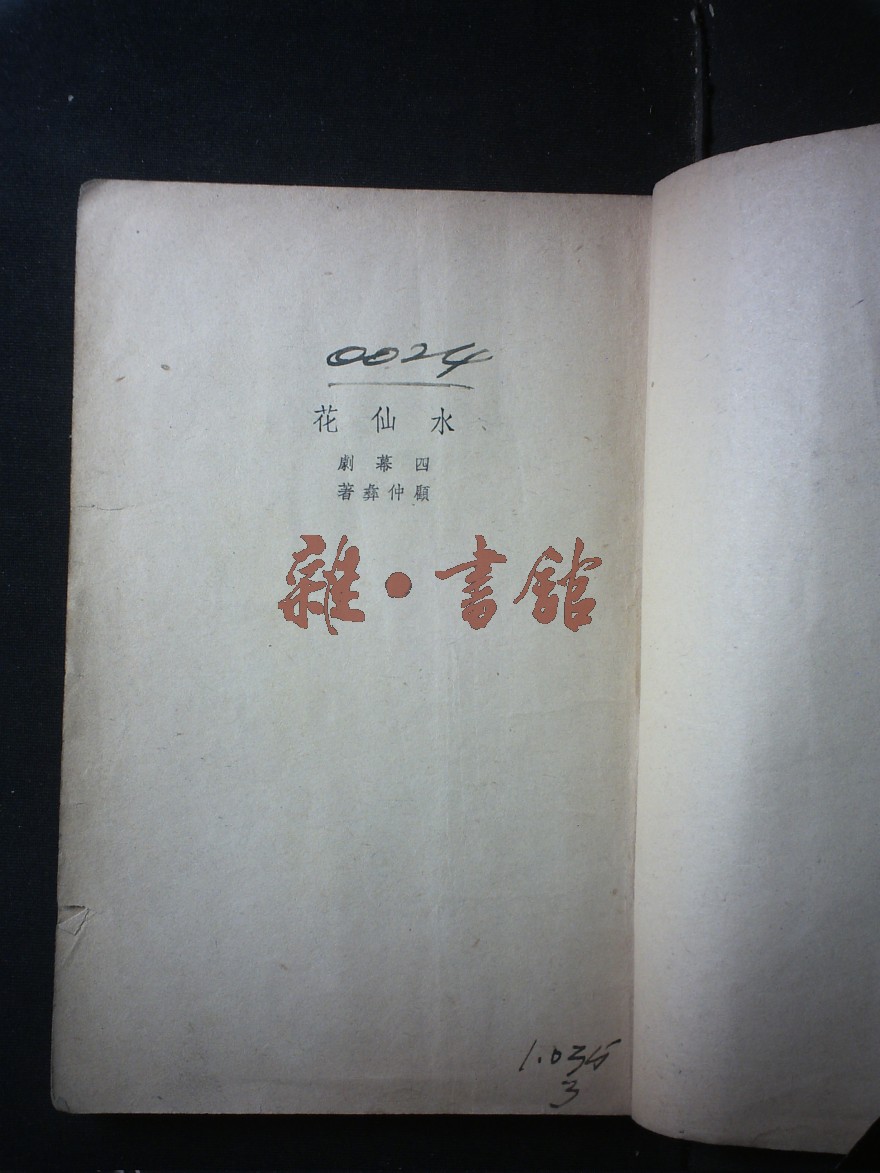 0024
水仙花
四幕劇
顧仲彝著
雜·書館
1.03分
3